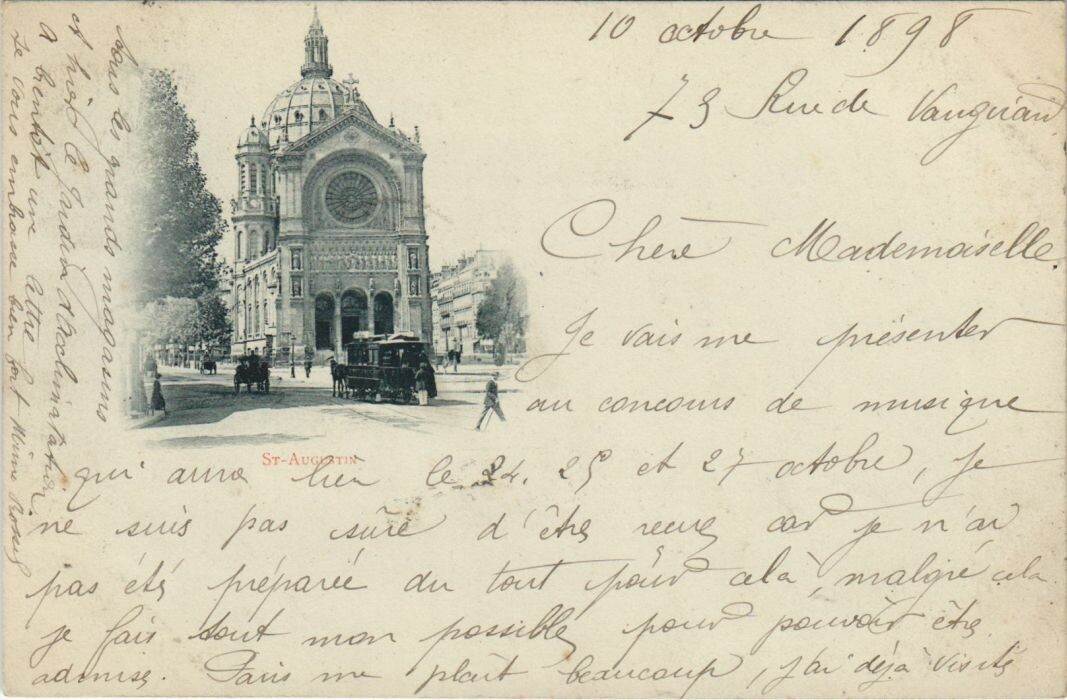 10 octobre 1898
73 Rue de Vaugirard
Chère Mademoiselle
Je vais me présenter
au concours de musique
qui aura lieu le 24, 25 et 27 octobre, je
ne suis pas sûre d'être reçue car je n'ai
pas été préparée du tout pour cela malgré cela
je fais tout mon possible pour pouvoir être
admise. Paris me plaît beaucoup, j'ai déjà visité
tous les grands magasins
et hier le Jardin d'Acclimatation
A bientôt une lettre
Je vous embrasse bien fort
ST-AUGUSTIN